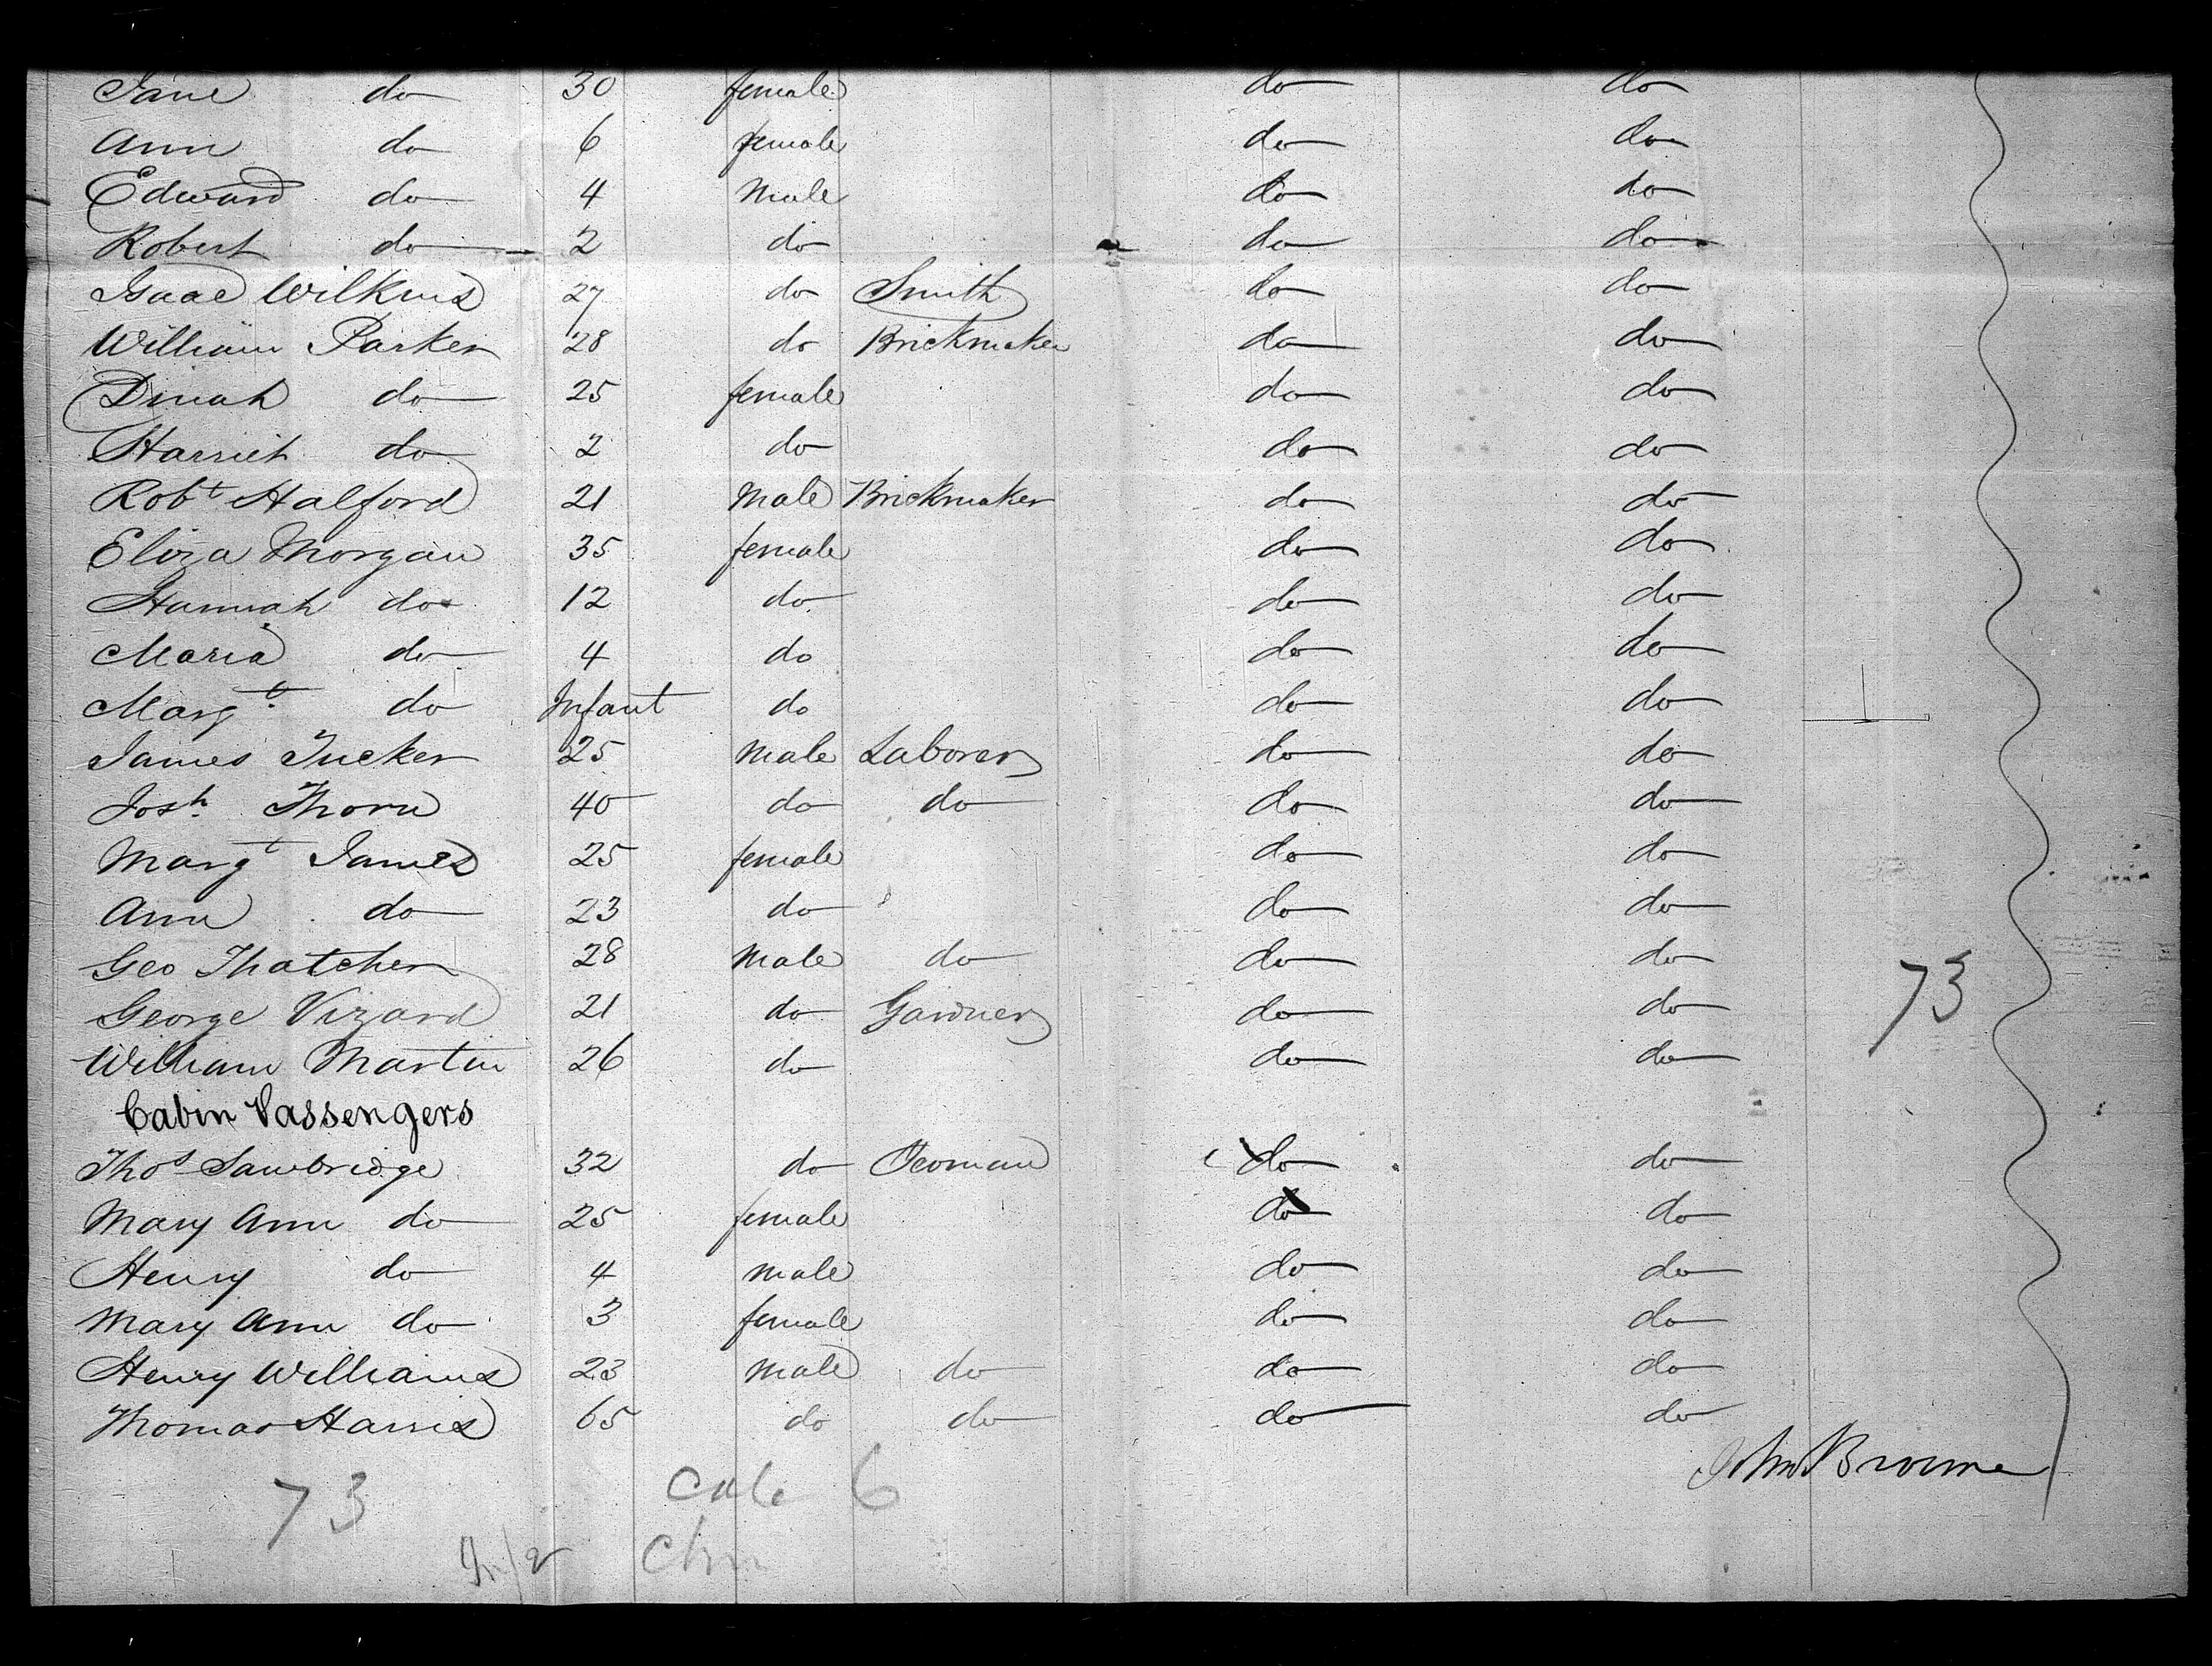 Jane do 30 female do do
Ann do 6 female do do
Edward do 4 Male do do
Robert do 2 do do do
Isaac Wilkins 27 do Smith do do
William Parker 28 do Brickmaker do do
Dinah do 25 female do do
Harriet do 2 do do do
Robt Halford 21 Male Brickmaker do do
Eliza Morgan 35 female do do
Hannah do 12 do do do
Maria do 4 do do do
Margt do Infant do do do
James Tucker 25 Male Laborer do do
Josh Thorn 40 do do do do
Margt James 25 female do do
Ann do 23 do do do
Geo Thatcher 28 Male do do do
George Vizard 21 do Gardner do do 73
William Martin 26 do do do
Cabin Passengers
Thos Sawbridge 32 do Yeoman do do
Mary Ann do 25 female do do
Henry do 4 male do do
Mary Ann do 3 female do do
Henry Williams 23 male do do do
Thomas Harris 65 do do do do
John Browne
73 6